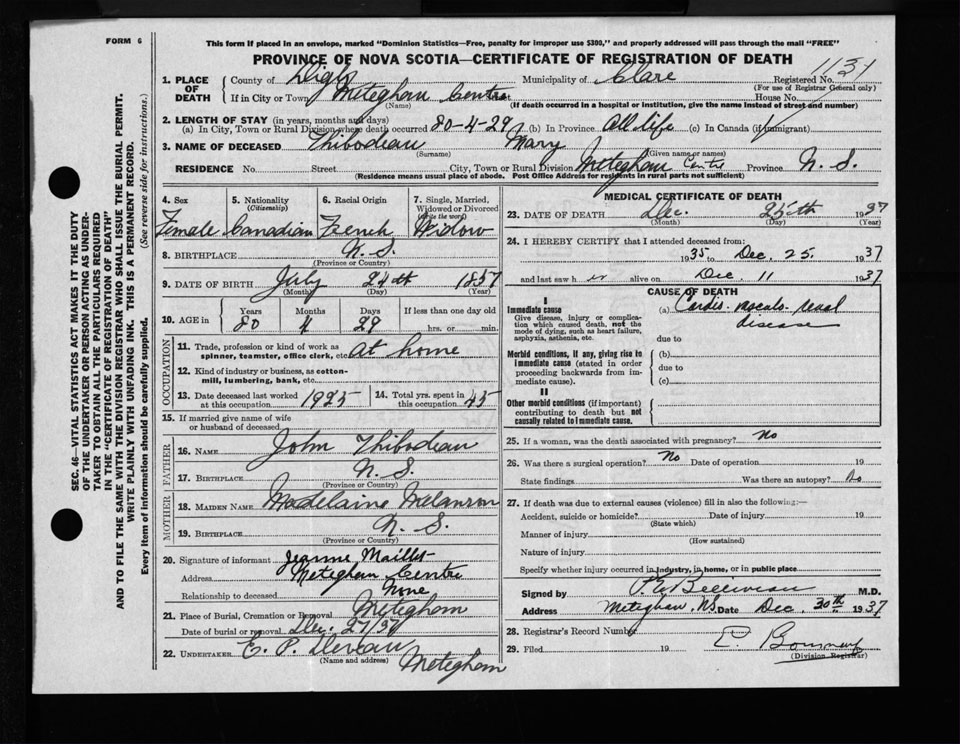 FORM 6
This form if placed in an envelope, marked "Dominion Statistics—Free, penalty for improper use $300," and properly addressed will pass through the mail "FREE"
PROVINCE OF NOVA SCOTIA—CERTIFICATE OF REGISTRATION OF DEATH
SEC. 46—VITAL STATISTICS ACT MAKES IT THE DUTY
OF THE UNDERTAKER OR PERSON ACTING AS UNDER-
TAKER TO OBTAIN ALL THE PARTICULARS REQUIRED
IN THE "CERTIFICATE OF REGISTRATION OF DEATH"
AND TO FILE THE SAME WITH THE DIVISION REGISTRAR WHO SHALL ISSUE THE BURIAL PERMIT.
WRITE PLAINLY WITH UNFADING INK. THIS IS A PERMANENT RECORD.
Every item of information should be carefully supplied. (See reverse side for instructions.)
1. PLACE OF DEATH County of Digby Municipality of Clare Registered No. 1131
(For use of Registrar General only)
If in City or Town Meteghan Centre House No.
(Name) (If death occurred in a hospital or institution, give the name instead of street and number)
2. LENGTH OF STAY (in years, months and days)
(a) In City, Town or Rural Division where death occurred 80-4-29 (b) In Province All life (c) In Canada (if immigrant)
3. NAME OF DECEASED Thibodeau Mary
(Surname) (Given name or names)
RESIDENCE No. Street City, Town or Rural Division Meteghan Centre Province N. S.
(Residence means usual place of abode. Post Office Address for residents in rural parts not sufficient)
4. Sex 5. Nationality (Citizenship) 6. Racial Origin 7. Single, Married, Widowed or Divorced (write the word)
Female Canadian French Widow
8. BIRTHPLACE N. S.
(Province or Country)
9. DATE OF BIRTH July 24th 1857
(Month) (Day) (Year)
10. AGE in Years Months Days If less than one day old
80 4 29 hrs. or min.
OCCUPATION
11. Trade, profession or kind of work as spinner, teamster, office clerk, etc. At home
12. Kind of industry or business, as cotton-mill, lumbering, bank, etc.
13. Date deceased last worked at this occupation 1925 14. Total yrs. spent in this occupation 45
15. If married give name of wife or husband of deceased
FATHER
16. NAME John Thibodeau
17. BIRTHPLACE N. S.
(Province or Country)
MOTHER
18. MAIDEN NAME Madelaine Melanson
19. BIRTHPLACE N. S.
(Province or Country)
20. Signature of informant Jeanne Maillet
Address Meteghan Centre
Relationship to deceased None
21. Place of Burial, Cremation or Removal Meteghan
Date of burial or removal Dec. 27/37
22. UNDERTAKER E. P. Deveau
(Name and address) Meteghan
MEDICAL CERTIFICATE OF DEATH
23. DATE OF DEATH Dec. 25th 1937
(Month) (Day) (Year)
24. I HEREBY CERTIFY that I attended deceased from:
1935 to Dec. 25. 1937
and last saw h er alive on Dec 11 1937
CAUSE OF DEATH
I
Immediate cause (a) Cardio-vasculo-renal disease
Give disease, injury or complication which caused death, not the mode of dying, such as heart failure, asphyxia, asthenia, etc.
due to
Morbid conditions, if any, giving rise to immediate cause (stated in order proceeding backwards from immediate cause).
(b)
due to
(c)
II
Other morbid conditions (if important) contributing to death but not causally related to immediate cause.
25. If a woman, was the death associated with pregnancy? No
26. Was there a surgical operation? No Date of operation 19
State findings Was there an autopsy? No
27. If death was due to external causes (violence) fill in also the following:—
Accident, suicide or homicide? Date of injury 19
(State which)
Manner of injury
(How sustained)
Nature of injury
Specify whether injury occurred in industry, in home, or in public place
Signed by P. E. Belliveau M.D.
Address Meteghan, N.S. Date Dec. 30th 1937
28. Registrar's Record Number
29. Filed 19
(Division Registrar)